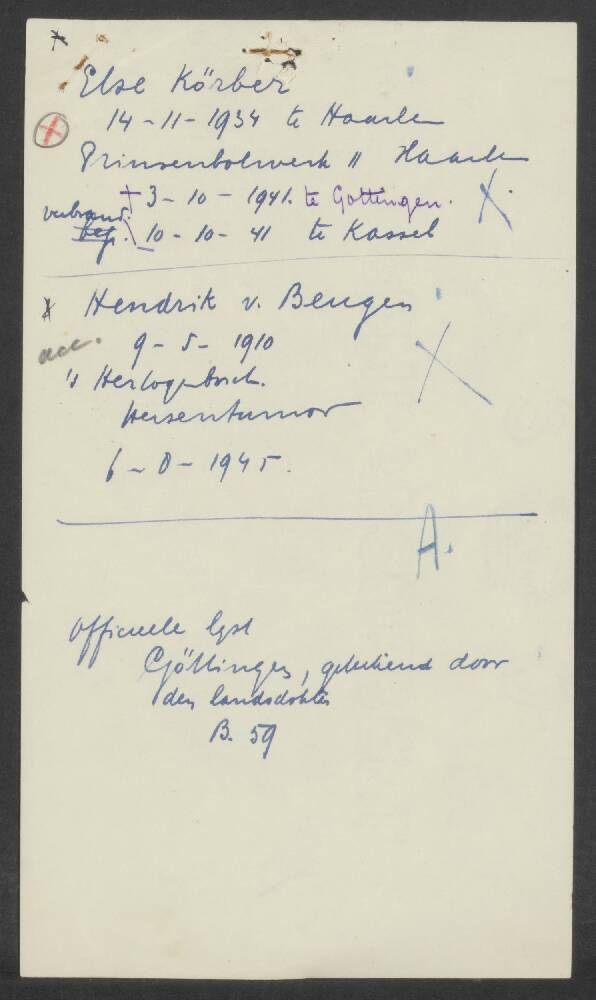 Else Körber
14-11-1934 te Haarlem
Prinsenbolwerk 11 Haarlem
† 3-10-1941. te Gottingen.
verbrand.
beg. 10-10-41 te Kassel
Hendrik v. Beugen
acc. 9-5-1910
's Hertogenbosch.
Hersentumor
6-8-1945.
A.
Officieele lyst
Göttingen, getekend door
den landsdokter
B. 59